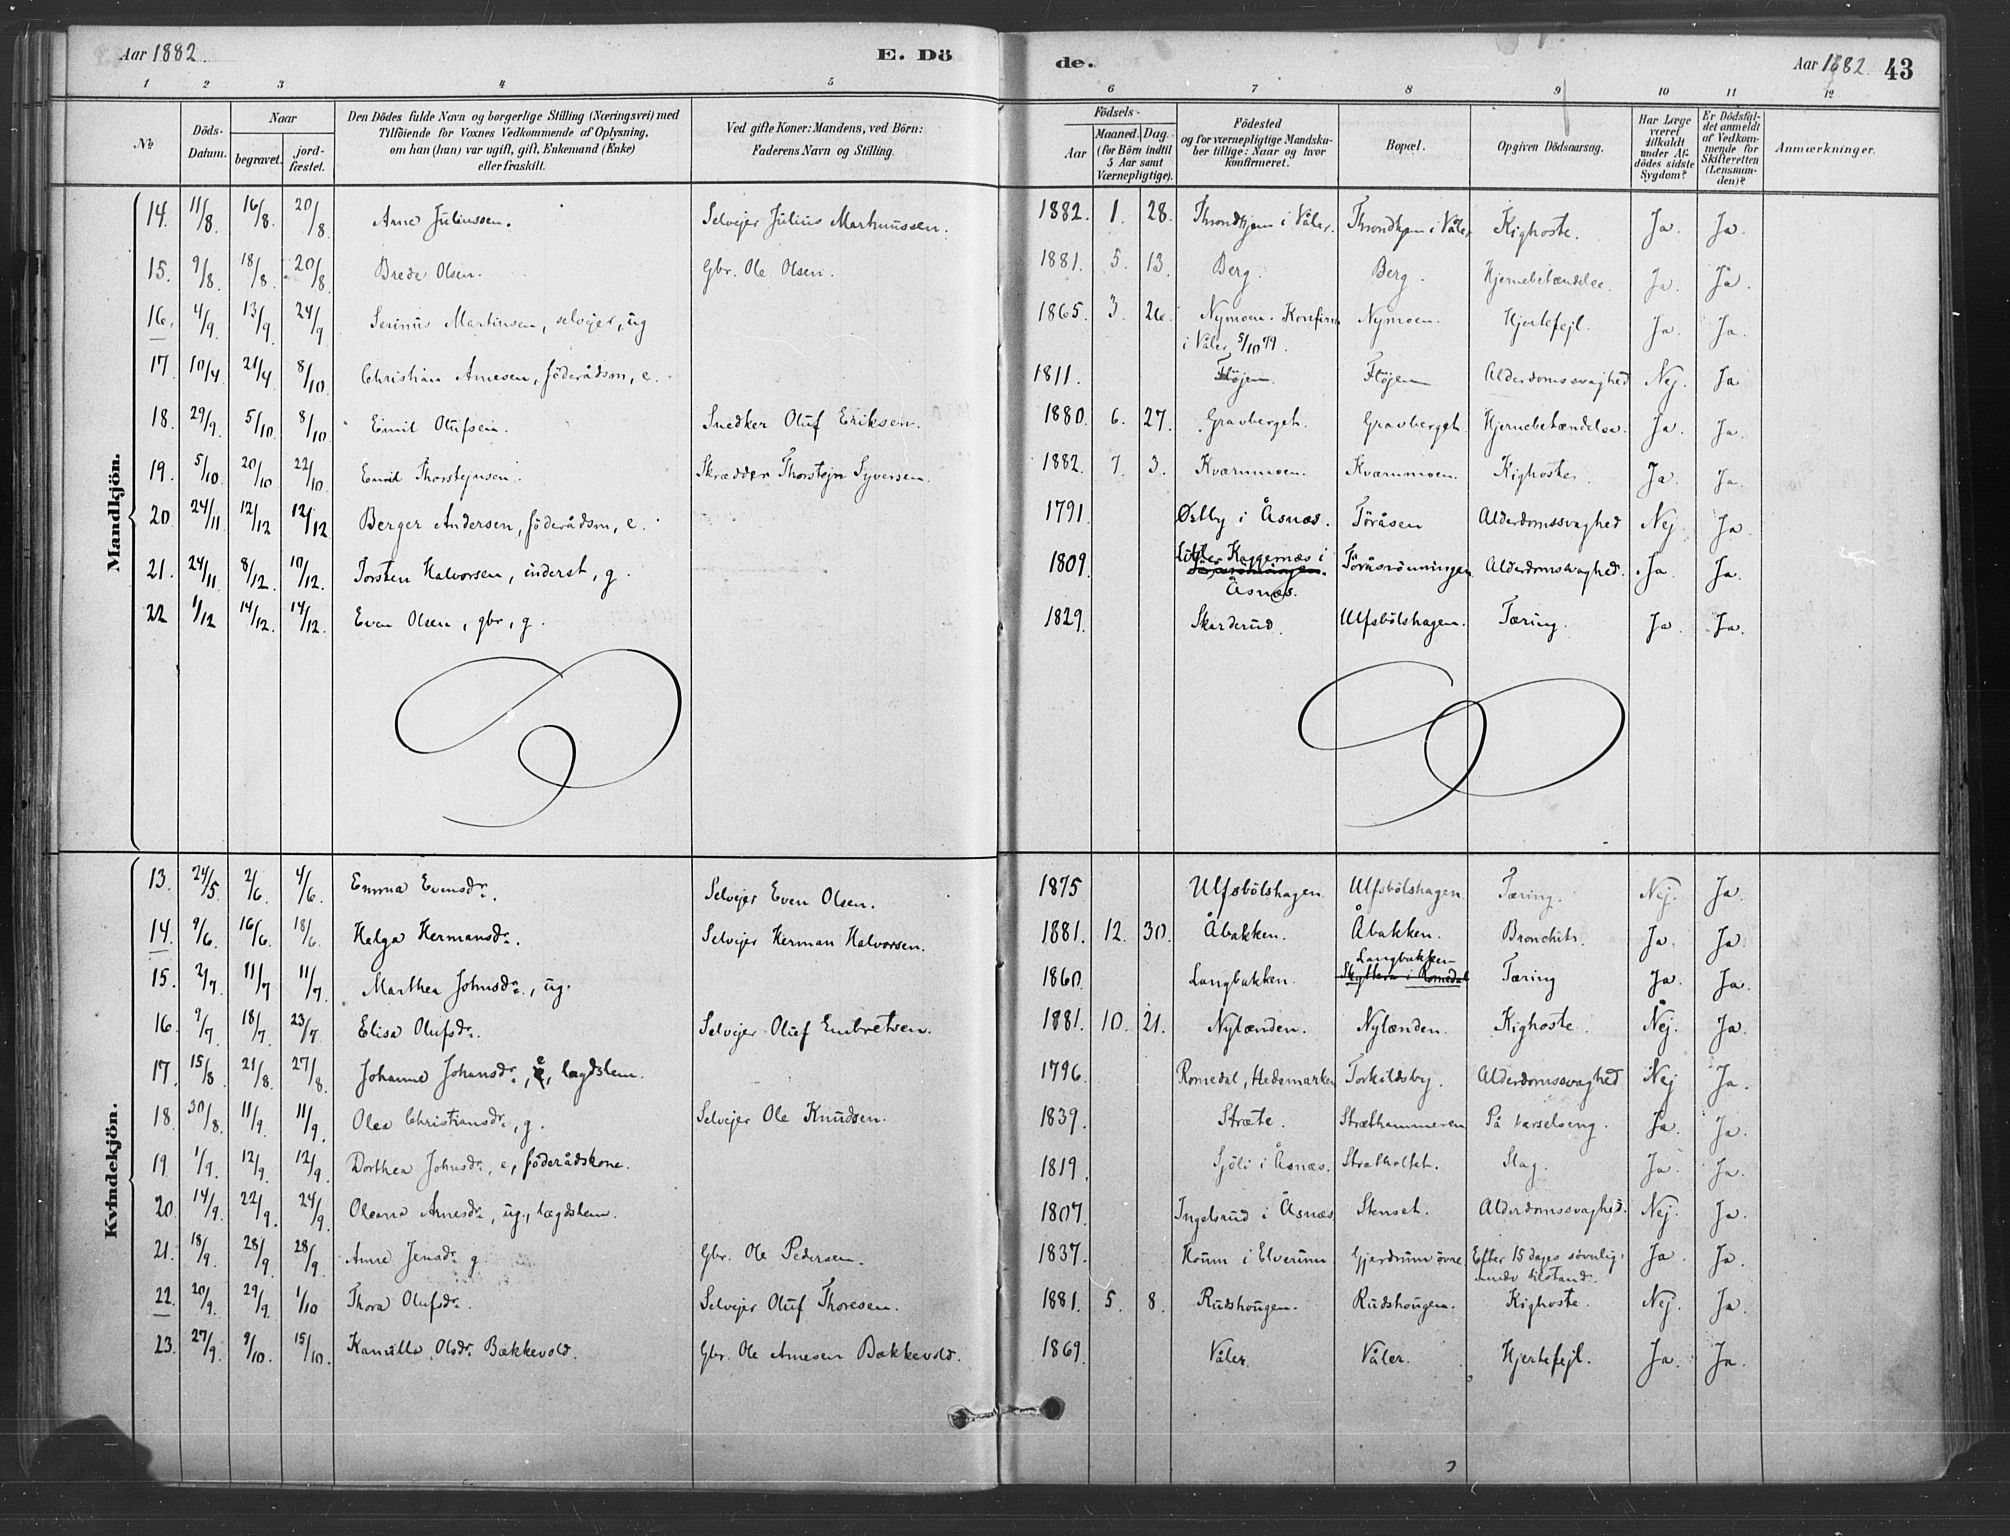 Aar 1882. E. Dö de. Aar 1882. 43
1 2 3 4 5 6 7 8 9 10 11 12
№ Döds-Datum. Naar begravet. jordfæstet. Den Dödes fulde Navn og borgerlige Stilling (Næringsvei) med Tilföiende for Voxnes Vedkommende af Oplysning, om han (hun) var ugift, gift, Enkemand (Enke) eller fraskilt. Ved gifte Koner: Mandens, ved Börn: Faderens Navn og Stilling. Födsels- Aar Maaned. Dag. (for Börn indtil 5 Aar samt Værnepligtige). Födested og for værnepligtige Mandskaber tillige: Naar og hvor konfirmeret. Bopæl. Opgiven Dödsaarsag. Har Læge været tilkaldt under Afdödes sidste Sygdom? Er Dödsfaldet anmeldt af Vedkommende for Skifteretten (Lensmanden)? Anmærkninger.
Mandkjön.
14. 11/8 16/8. 20/8 Arne Juliussen. Selvejer Julius Marthinussen. 1882. 1. 28. Throndhjem i Våler. Throndhjem i Våler Kighoste. Ja. Ja.
15. 9/8 18/8. 20/8 Brede Olsen. Gbr. Ole Olsen. 1881. 5. 13. Berg. Berg. Hjernebetændelse. Ja. Ja.
16. 4/9. 13/9 24/9 Serinus Martinsen, selvejer, ug 1865 3. 26. Nymoen. Konfirm. i Våler 5/10 79. Nymoen. Hjertefejl. Ja. Ja.
17. 10/4 21/4. 8/10. Christian Arnesen, föderådsm, e. 1811. Flöjen. Flöjen Alderdomssvaghed Nej. Ja
18. 29/9. 5/10 8/10 Emil Olufsen. Snedker Oluf Eriksen. 1880 6. 27. Gravberget. Gravberget. Hjernebetændelse. Ja. Ja.
19. 5/10. 20/10 22/10 Emil Thorstejnsen. Skrædder Thorstejn Syversen. 1882 7. 3. Kværnmoen. Kværnmoen. Kighoste. Ja Ja.
20 24/11. 12/12 12/12 Berger Andersen, föderådsm, e. 1791 Østby i Åsnæs. Töråsen Alderdomssvaghed Nej Ja
21. 24/11 8/12. 10/12. Torsten Halvorsen, inderst, g. 1809 Kaggernæs i Åsnæs. Töråsrönningen Alderdomssvaghed. Ja. Ja.
22 1/12 14/12. 14/12. Even Olsen, gbr, g. 1829. Skarderud. Ulfsbölshagen. Tæring. Ja. Ja.
Kvindekjön.
13. 24/5 2/6 4/6. Emma Evensdr. Selvejer Even Olsen. 1875 Ulfsbölshagen. Ulfsbölshagen Tæring. Nej. Ja.
14. 9/6 16/6. 18/6. Helga Hermansdr. Selvejer Herman Halvorsen. 1881. 12. 30. Åbakken. Åbakken. Bronchit. Ja. Ja.
15. 2/7 11/7 11/7 Marthea Johnsdr., ug. 1860. Langbakken. Langbakken Skyttera i Romedal Tæring Ja. Ja.
16 9/7. 18/7 23/7 Elisa Olufsdr. Selvejer Oluf Embretsen. 1881. 10. 21. Nylænden. Nylænden. Kighoste. Nej. Ja.
17. 15/8 21/8. 27/8. Johanne Johansdr., e, lægdslem. 1796. Romedal, Hedemarken Torkildsby. Alderdomssvaghed Nej Ja.
18. 30/8. 11/9. 11/9. Olea Christiansdr., g. Selvejer Ole Knudsen. 1839. Stræte. Stræthammeren På barselseng. Ja. Ja.
19 1/9. 12/9. 12/9. Dorthea Johnsdr., e, föderådskone. 1819. Sjöli i Åsnæs. Strætholtet. Slag. Ja. Ja.
20. 14/9. 22/9. 24/9. Oleana Arnesdr., ug., lægdslem. 1807. Ingelsrud i Åsnæs Stenset. Alderdomssvaghed. Nej. Ja.
21. 18/9. 28/9 28/9 Anne Jensdr. g. Gbr. Ole Pedersen. 1837. Houm i Elverum Gjerdrum övre Efter 15 dages sövnlignende tilstand. Ja. Ja.
22. 20/9. 29/9. 1/10 Thora Olufsdr. Selvejer Oluf Thoresen. 1881. 5. 8. Rudshougen. Rudshougen. Kighoste. Nej. Ja.
23. 27/9. 9/10. 15/10. Kamilla Olsdr. Bækkevold. Gbr. Ole Arnesen Bækkevold. 1869. Våler. Våler. Hjertefejl. Ja. Ja.